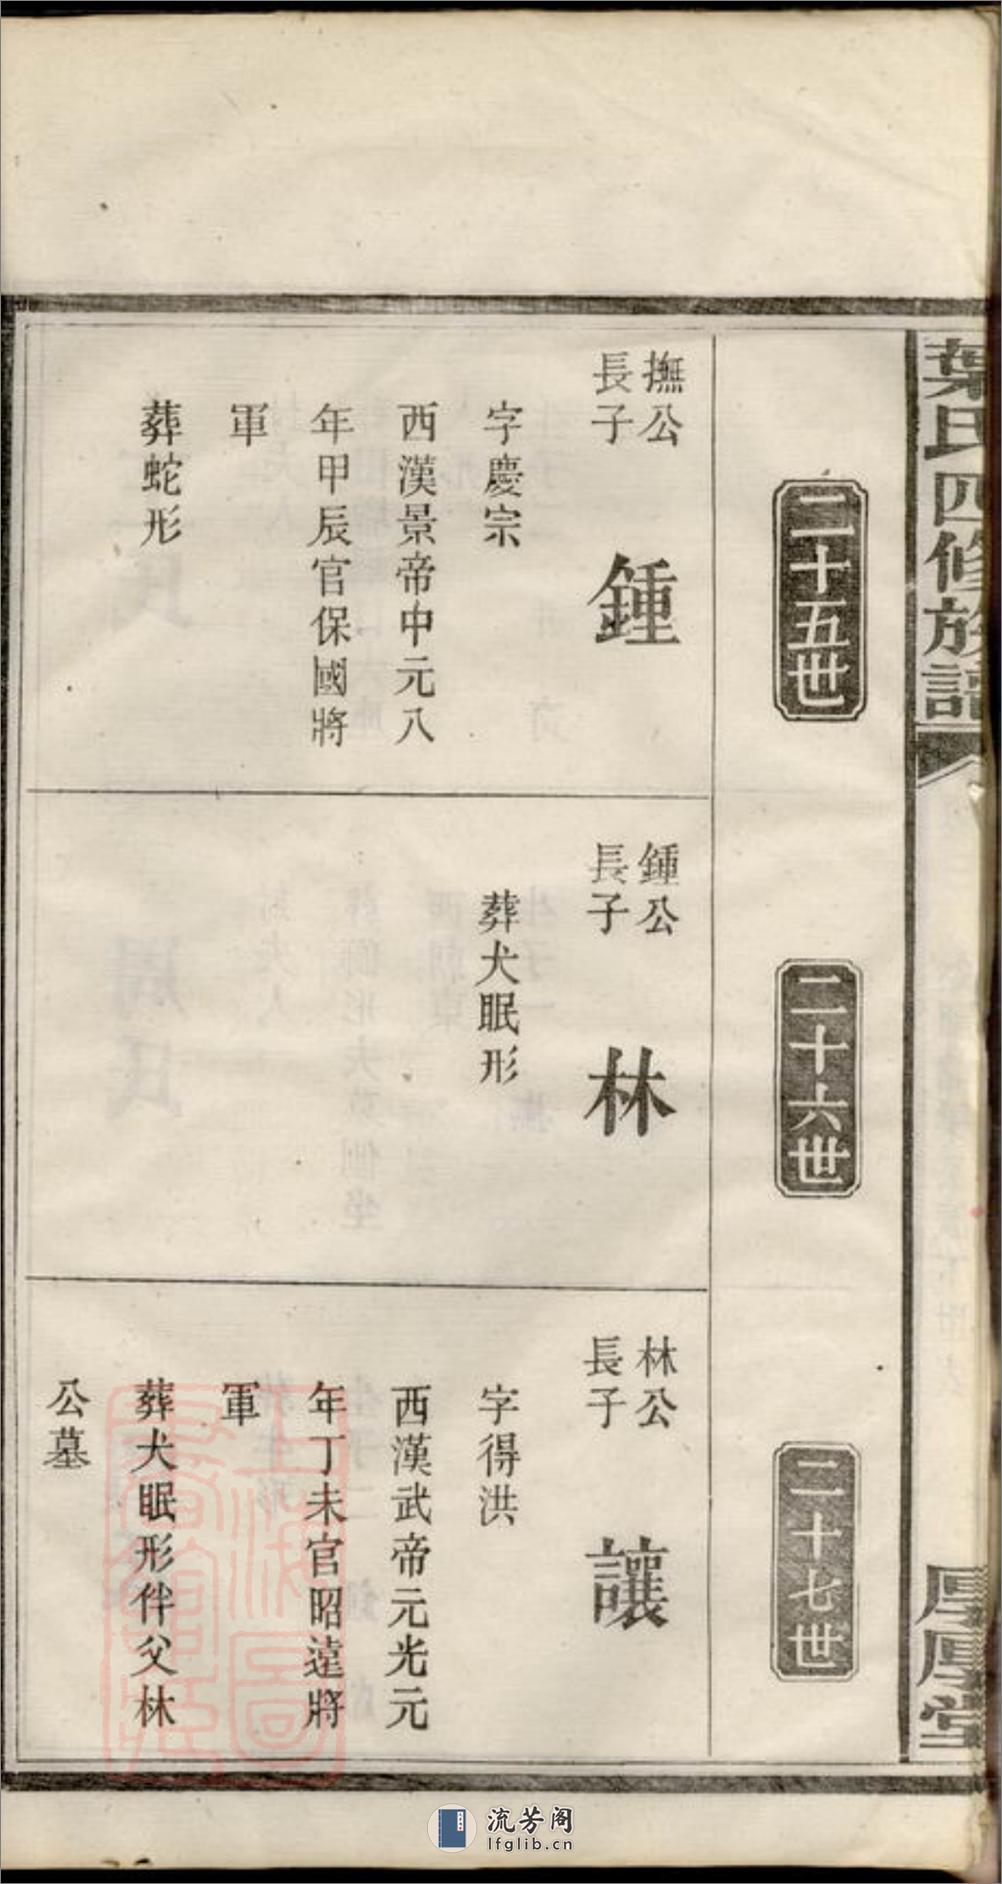 葉氏四修族譜
厚厚堂
二十五世
撫公
長子
鍾
字慶宗
西漢景帝中元八
年甲辰官保國將
軍
葬蛇形
二十六世
鍾公
長子
林
葬犬眠形
二十七世
林公
長子
讓
字得洪
西漢武帝元光元
年丁未官昭遠將
軍
葬犬眠形伴父林
公墓
上海圖
書館藏
流芳阁
lfglib.cn